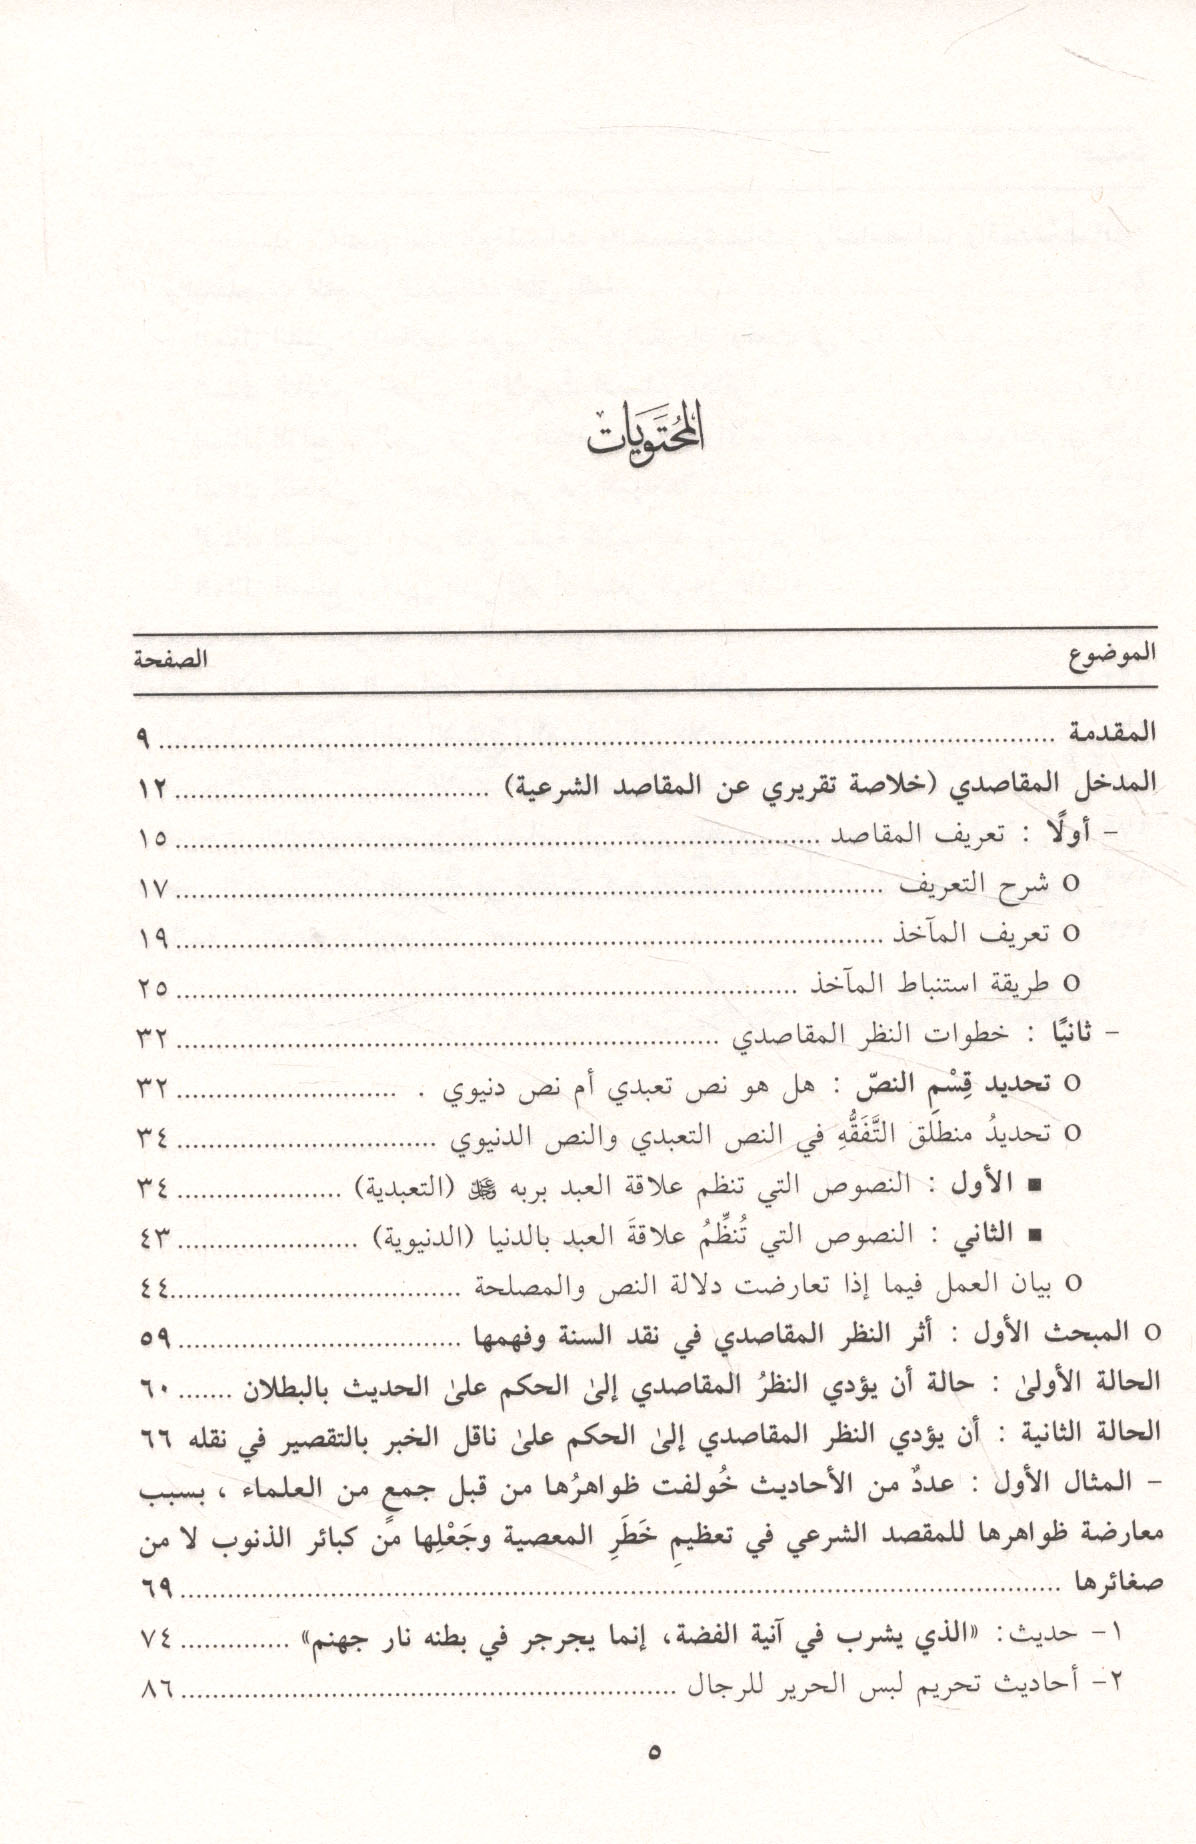 المُحتَويَات
الموضوع الصفحة
المقدمة ........ ٩
المدخل المقاصدي (خلاصة تقريري عن المقاصد الشرعية) ........ ١٢
- أولًا : تعريف المقاصد ........ ١٥
○ شرح التعريف ........ ١٧
○ تعريف المآخذ ........ ١٩
○ طريقة استنباط المآخذ ........ ٢٥
- ثانيًا : خطوات النظر المقاصدي ........ ٣٢
○ تحديد قِسْمِ النصّ : هل هو نص تعبدي أم نص دنيوي . ........ ٣٢
○ تحديدُ منطلَق التَّفَقُّهِ في النص التعبدي والنص الدنيوي ........ ٣٤
■ الأول : النصوص التي تنظم علاقة العبد بربه (التعبدية) ........ ٣٤
■ الثاني : النصوص التي تُنظِّمُ علاقةَ العبد بالدنيا (الدنيوية) ........ ٤٣
○ بيان العمل فيما إذا تعارضت دلالة النص والمصلحة ........ ٤٤
○ المبحث الأول : أثر النظر المقاصدي في نقد السنة وفهمها ........ ٥٩
الحالة الأولىٰ : حالة أن يؤدي النظرُ المقاصدي إلىٰ الحكم علىٰ الحديث بالبطلان ....... ٦٠
الحالة الثانية : أن يؤدي النظر المقاصدي إلىٰ الحكم علىٰ ناقل الخبر بالتقصير في نقله ٦٦
- المثال الأول : عددٌ من الأحاديث خُولفت ظواهرُها من قبل جمعٍ من العلماء ، بسبب
معارضة ظواهرها للمقصد الشرعي في تعظيمِ خَطَرِ المعصية وجَعْلِها من كبائر الذنوب لا من
صغائرها ........ ٦٩
١- حديث: «الذي يشرب في آنية الفضة، إنما يجرجر في بطنه نار جهنم» ........ ٧٤
٢- أحاديث تحريم لبس الحرير للرجال ........ ٨٦
٥